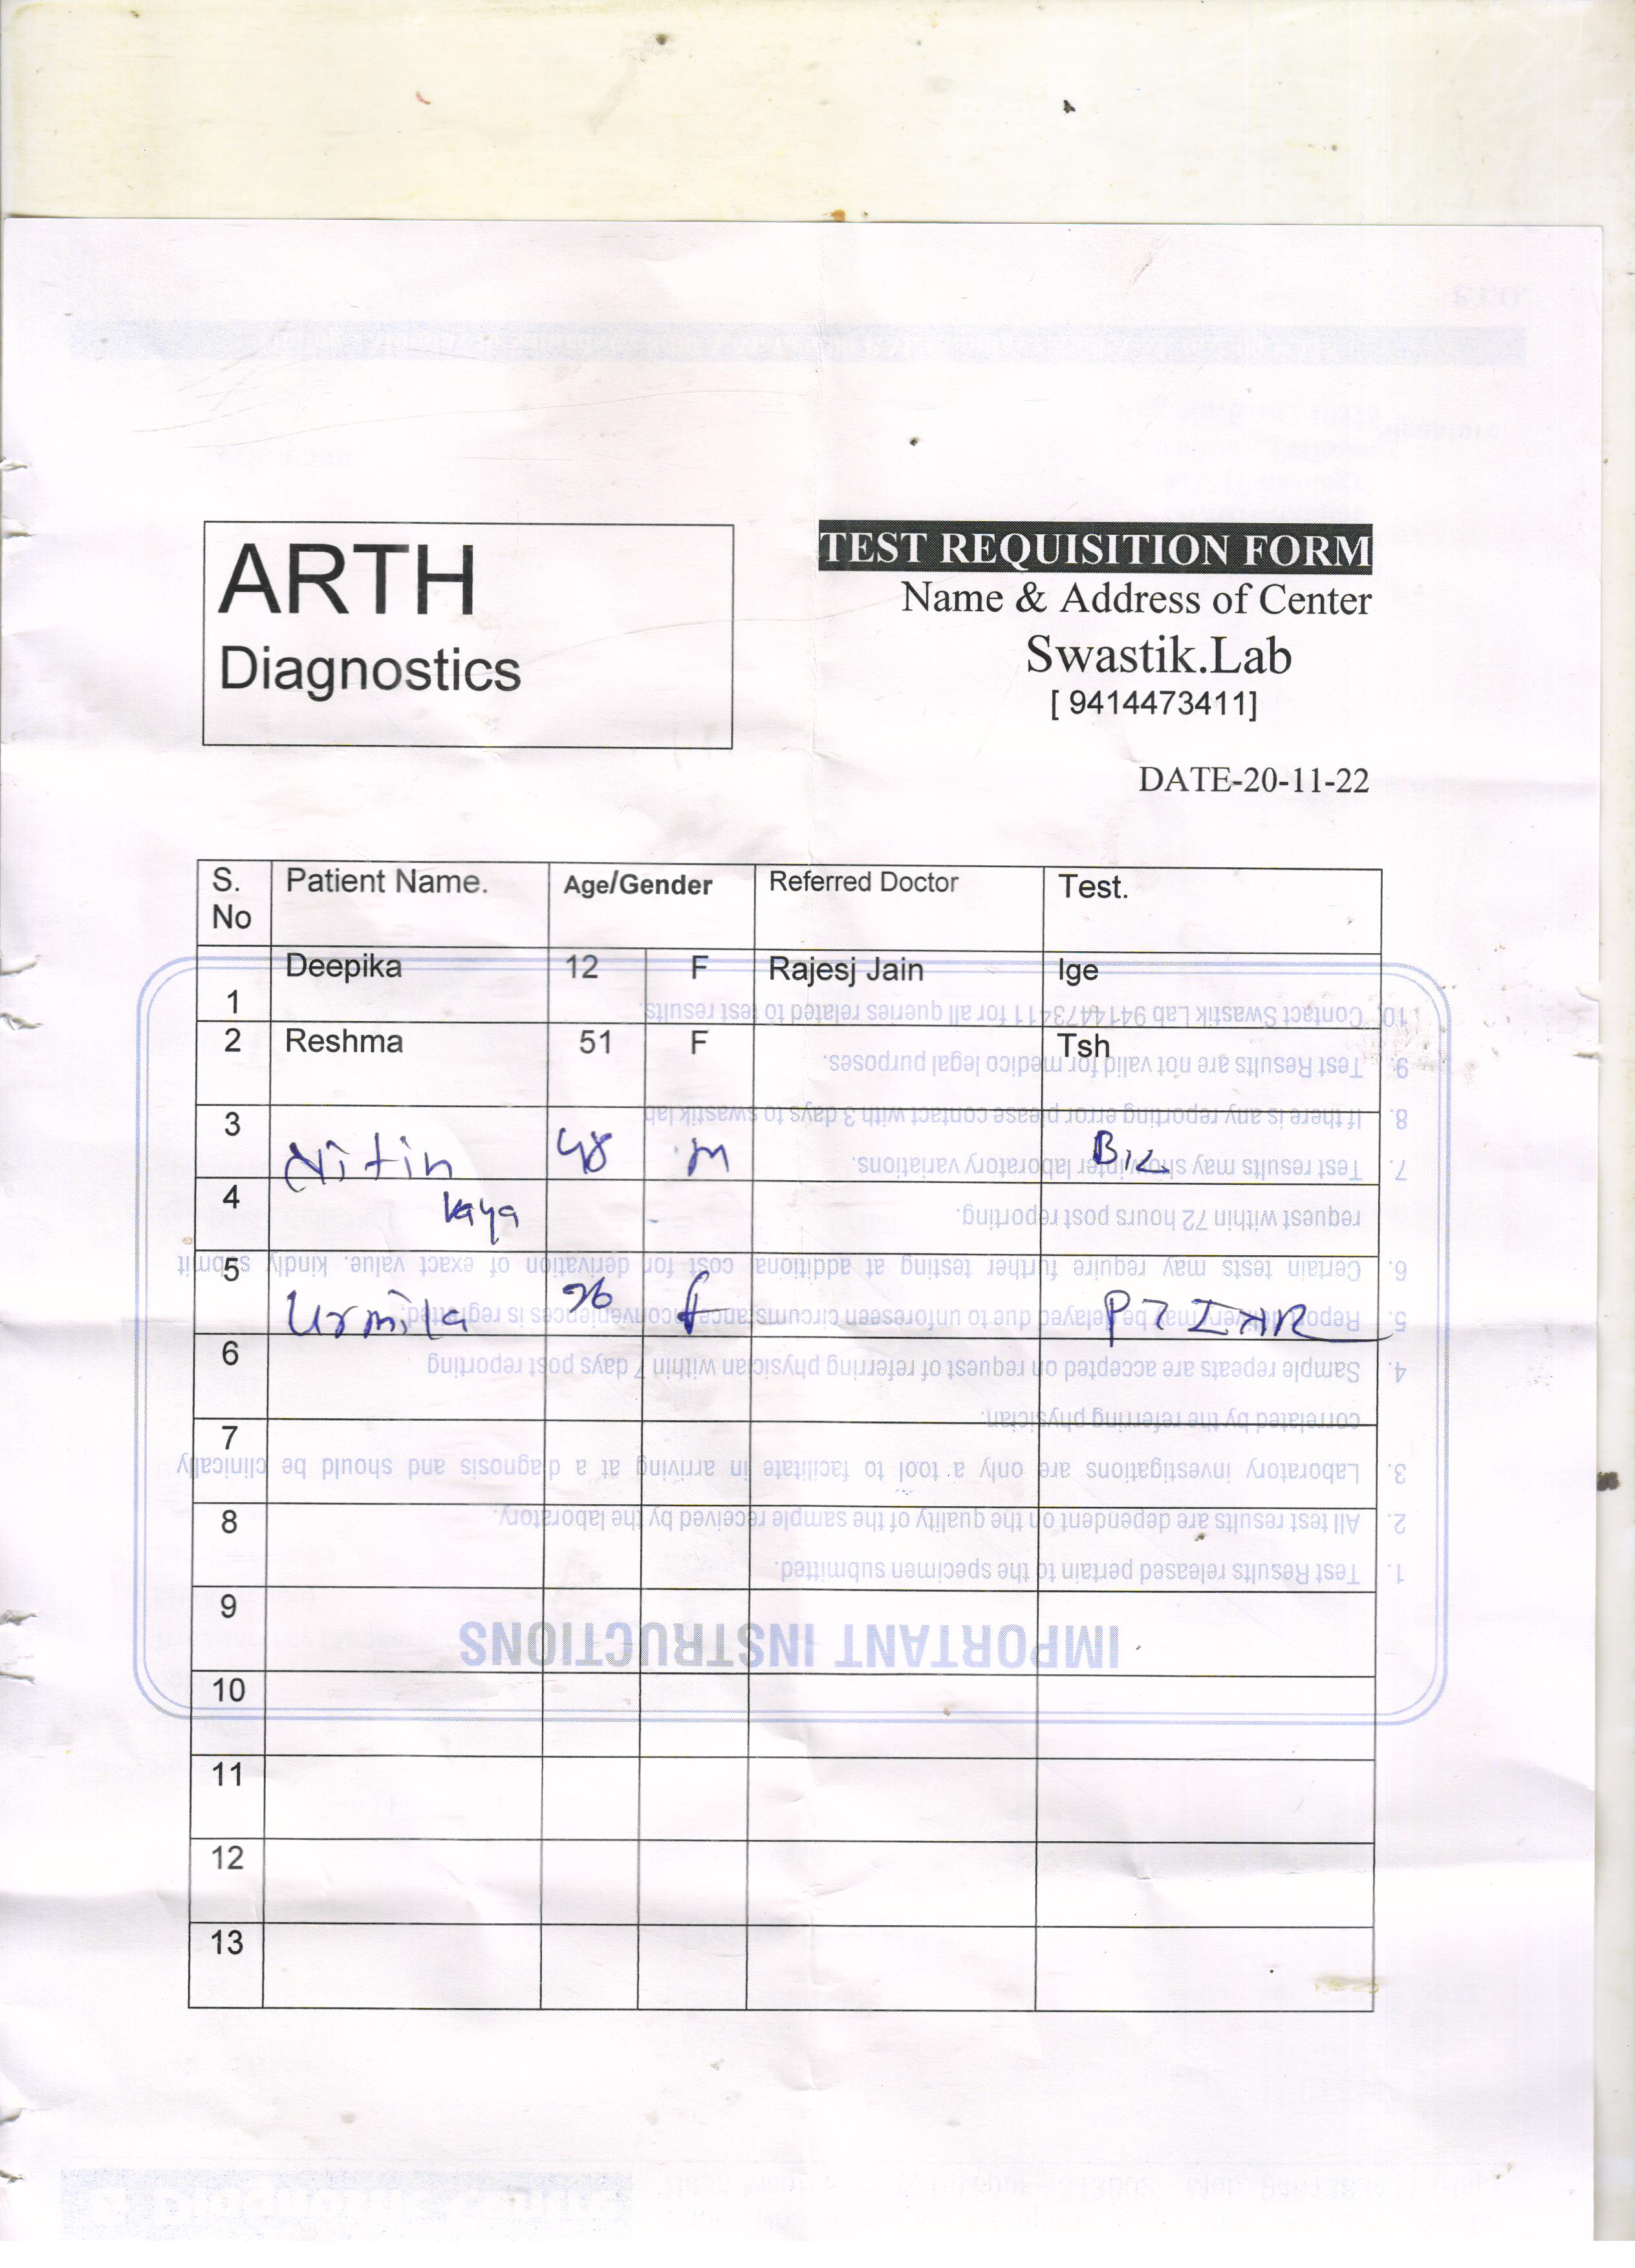 ARTH
Diagnostics
TEST REQUISITION FORM
Name & Address of Center
Swastik.Lab
[ 9414473411]
DATE-20-11-22
S. No Patient Name. Age/Gender Referred Doctor Test.
1 Deepika 12 F Rajesj Jain Ige
2 Reshma 51 F Tsh
3 Nitin 48 m B12
4 Kaya
5 Urmila f
6
7
8
9
10
11
12
13
IMPORTANT INSTRUCTIONS
1. Test Results released pertain to the specimen submitted.
2. All test results are dependent on the quality of the sample received by the laboratory.
3. Laboratory investigations are only a tool to facilitate in arriving at a diagnosis and should be clinically
correlated by the referring physician.
4. Sample repeats are accepted on request of referring physician within 7 days post reporting
5. Report delivery may be delayed due to unforeseen circumstances. Inconveniences is regretted.
6. Certain tests may require further testing at additional cost for derivation of exact value. kindly submit
request within 72 hours post reporting.
7. Test results may show inter laboratory variations.
8. If there is any reporting error please contact with 3 days to swastik lab
9. Test Results are not valid for medico legal purposes.
10. Contact Swastik Lab 9414473411 for all queries related to test results.